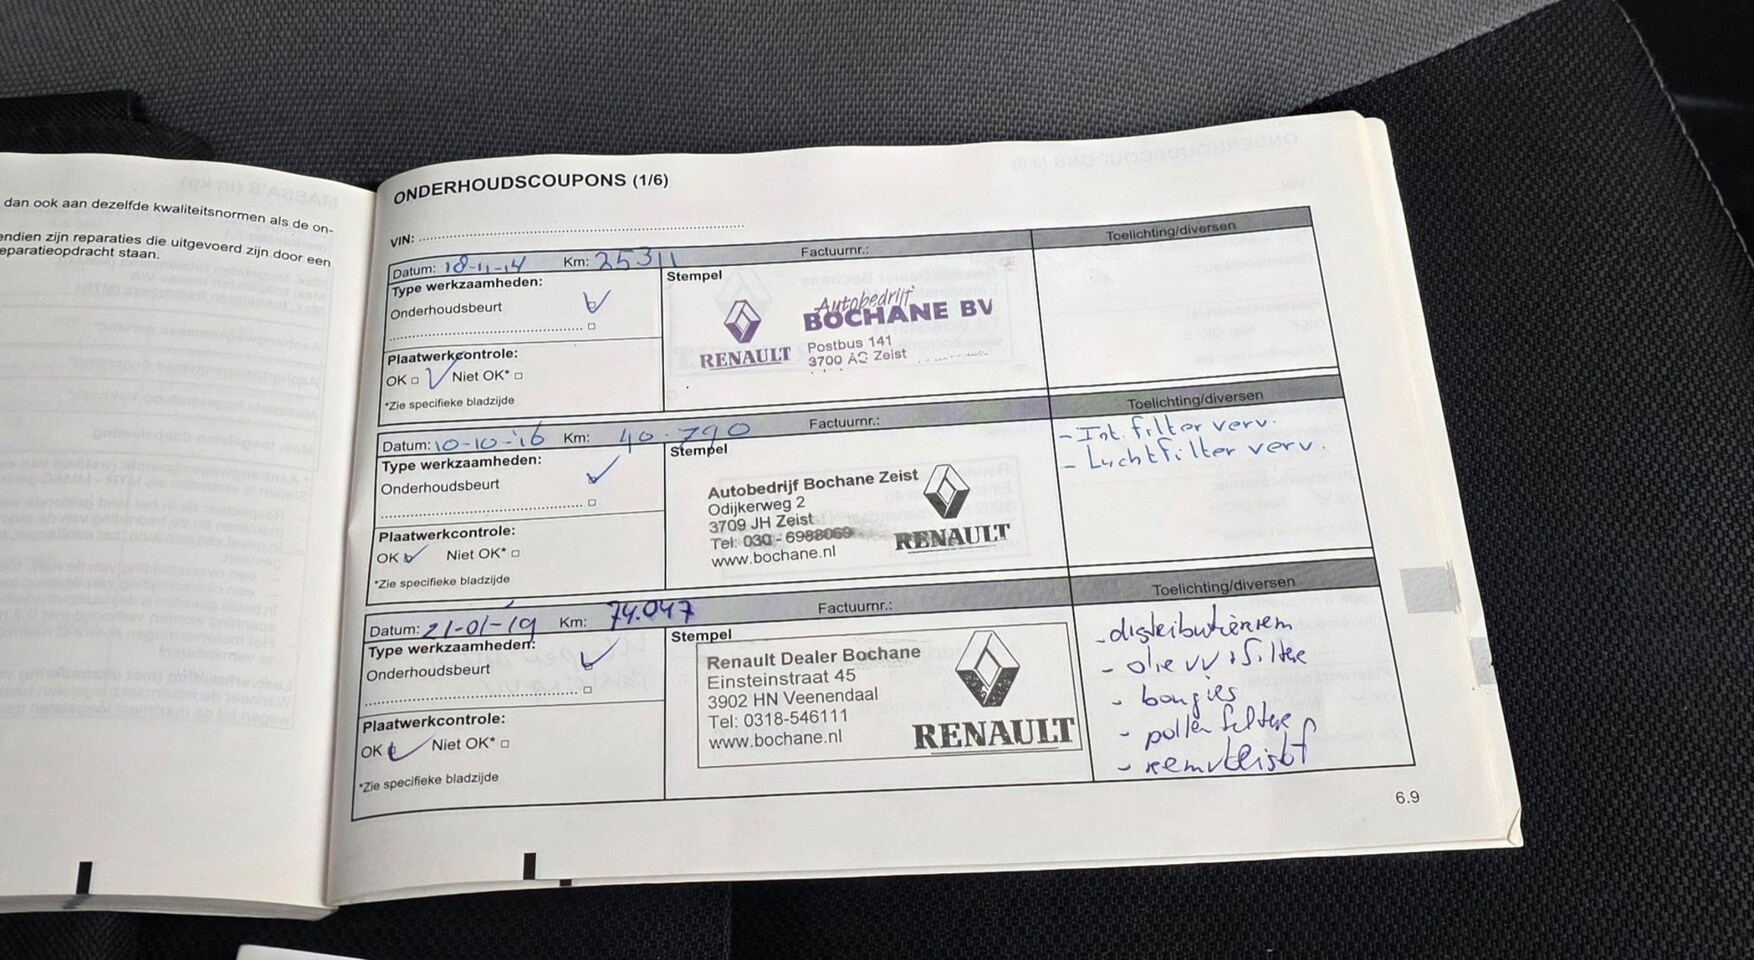 dan ook aan dezelfde kwaliteitsnormen als de on-
endien zijn reparaties die uitgevoerd zijn door een
eparatieopdracht staan.
ONDERHOUDSCOUPONS (1/6)
VIN:
Datum: 18-11-14 Km: 25311 Factuurnr.: Toelichting/diversen
Type werkzaamheden:
Onderhoudsbeurt
Plaatwerkcontrole:
OK Niet OK*
*Zie specifieke bladzijde
Stempel
RENAULT
Autobedrijf
BOCHANE BV
Postbus 141
3700 AC Zeist
Datum: 10-10-16 Km: 40.790 Factuurnr.: Toelichting/diversen
Type werkzaamheden:
Onderhoudsbeurt
Plaatwerkcontrole:
OK Niet OK*
*Zie specifieke bladzijde
Stempel
Autobedrijf Bochane Zeist
Odijkerweg 2
3709 JH Zeist
Tel: 030 - 6988069
www.bochane.nl
RENAULT
- Int. filter verv.
- Luchtfilter verv.
Datum: 21-01-19 Km: 74.047 Factuurnr.: Toelichting/diversen
Type werkzaamheden:
Onderhoudsbeurt
Plaatwerkcontrole:
OK Niet OK*
*Zie specifieke bladzijde
Stempel
Renault Dealer Bochane
Einsteinstraat 45
3902 HN Veenendaal
Tel: 0318-546111
www.bochane.nl
RENAULT
- distributieriem
- olie vv + filtre
- bougies
- pollen filtre
- remvleistof
6.9